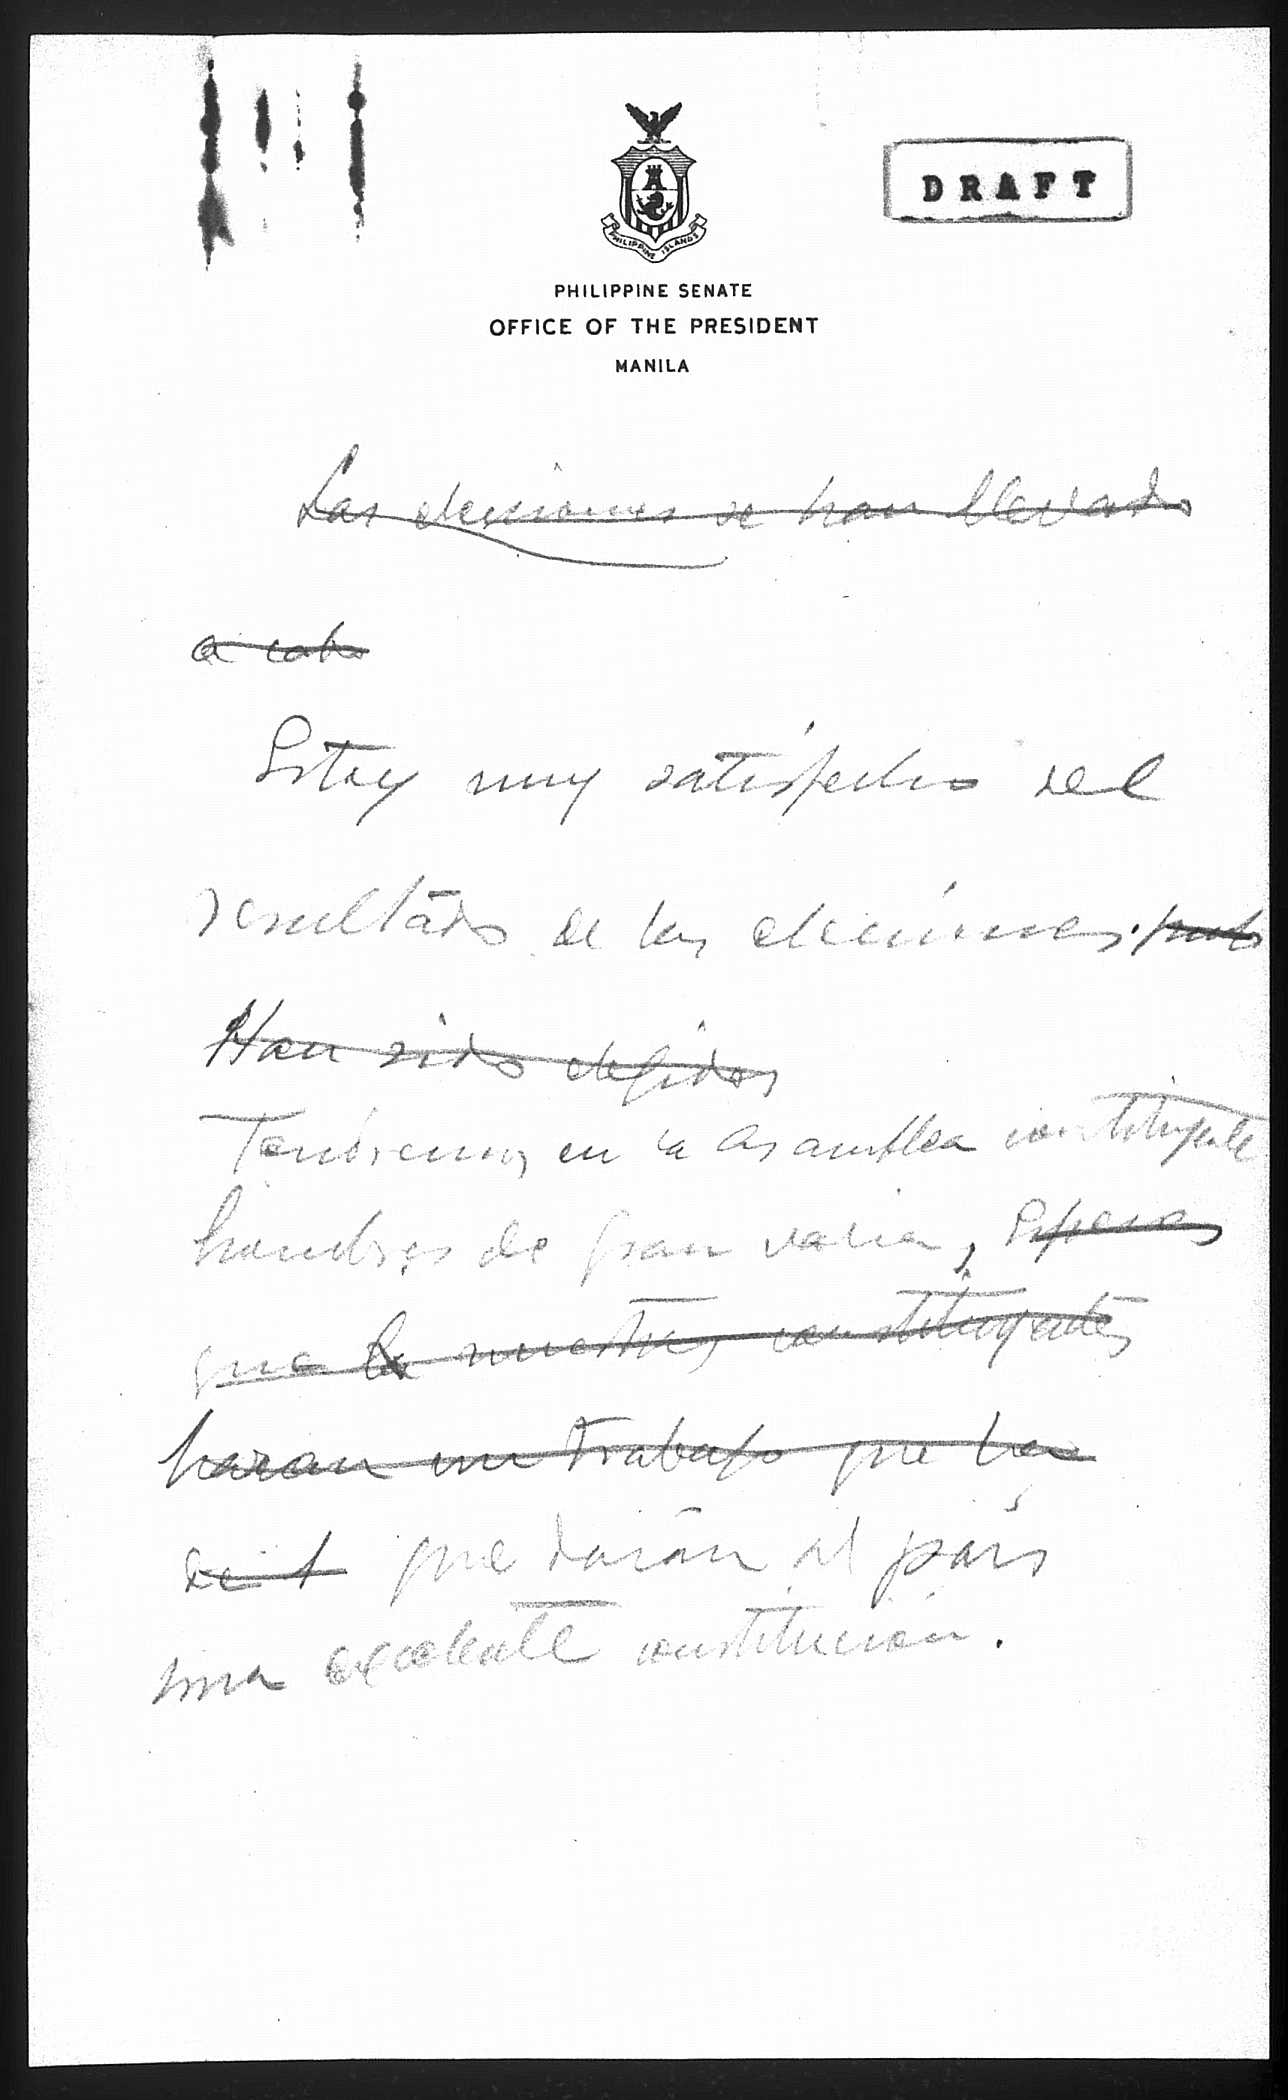 DRAFT
PHILIPPINE ISLANDS
PHILIPPINE SENATE
OFFICE OF THE PRESIDENT
MANILA
Las elecciones se han llevado
a cabo
Estoy muy satisfecho del
resultado de las elecciones.
Han sido elegidos
Tendremos en la Asamblea constituyente
hombres de gran valia,
que nuestros constituyentes
haran un trabajo que
que darán al país
una excelente constitución.